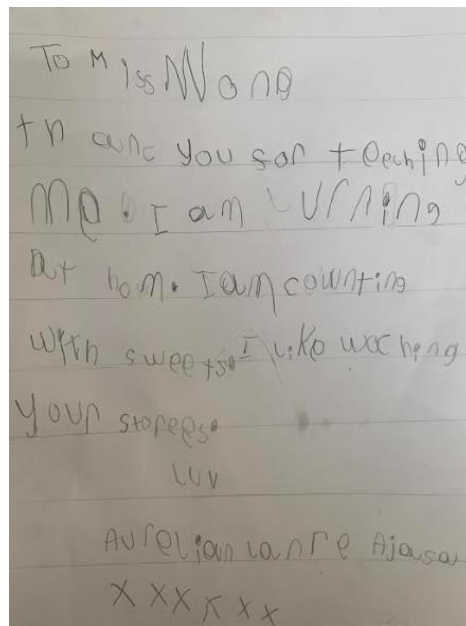 To Miss Wong
thanc you for teeching
me. I am lurning
at hom. I am counting
with sweets. I like waching
your storees.
luv
Aurelian Lanre
xxxxxx